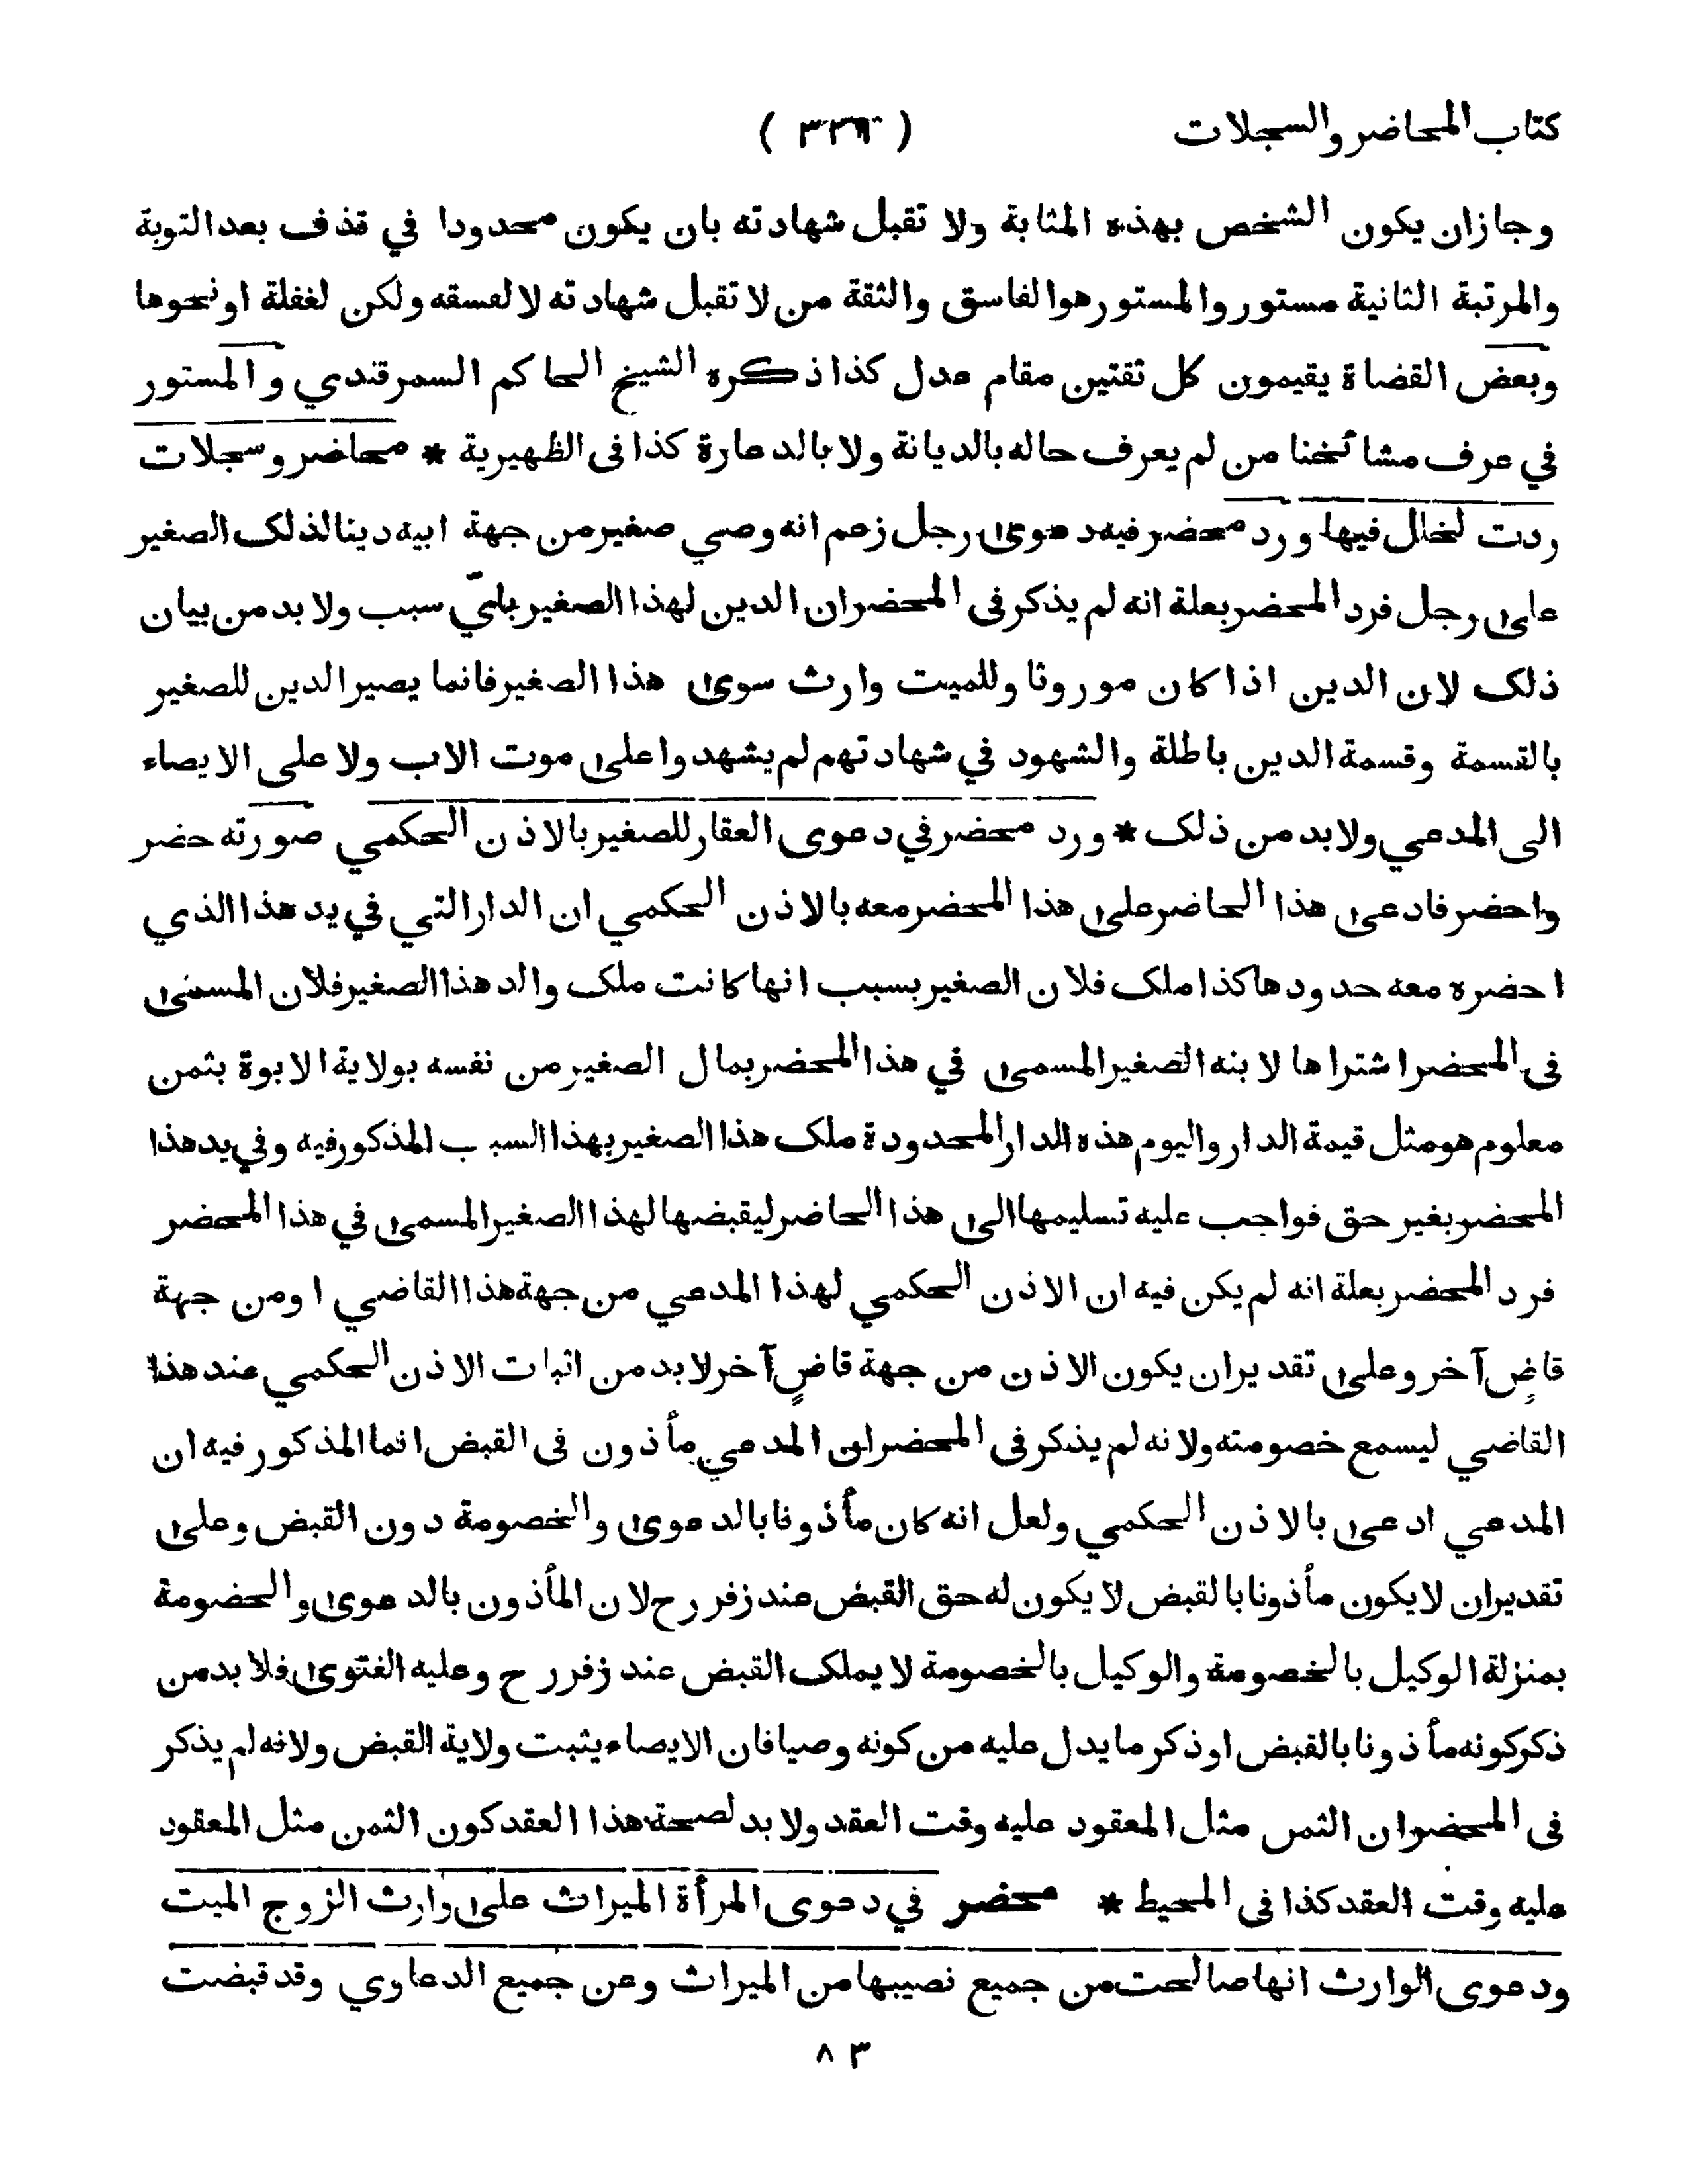 كتاب المحاضر والسجلات ( ٣٢٩ )
وجاز ان يكون الشخص بهذه المثابة ولا تقبل شهادته بان يكون محدودا في قذف بعد التوبة
والمرتبة الثانية مستور والمستور هو الفاسق والثقة من لا تقبل شهادته لا لفسقه ولكن لغفلة او نحوها
وبعض القضاة يقيمون كل ثقتين مقام عدل كذا ذكره الشيخ الحاكم السمرقندي والمستور
في عرف مشائخنا من لم يعرف حاله بالديانة ولا بالدعارة كذا فى الظهيرية * محاضر وسجلات
ردت لخلل فيها ورد محضر فيه دعوى رجل زعم انه وصي صغير من جهة ابيه دينا لذلك الصغير
على رجل فرد المحضر بعلة انه لم يذكر فى المحضر ان الدين لهذا الصغير باىّ سبب ولا بد من بيان
ذلك لان الدين اذا كان موروثا وللميت وارث سوى هذا الصغير فانما يصير الدين للصغير
بالقسمة وقسمة الدين باطلة والشهود في شهادتهم لم يشهدوا على موت الاب ولا على الايصاء
الى المدعي ولا بد من ذلك * ورد محضر في دعوى العقار للصغير بالاذن الحكمي صورته حضر
واحضر فادعى هذا الحاضر على هذا المحضر معه بالاذن الحكمي ان الدار التي في يد هذا الذي
احضره معه حدودها كذا ملك فلان الصغير بسبب انها كانت ملك والد هذا الصغير فلان المسمى
فى المحضر اشتراها لابنه الصغير المسمى في هذا المحضر بمال الصغير من نفسه بولاية الابوة بثمن
معلوم هو مثل قيمة الدار واليوم هذه الدار المحدودة ملك هذا الصغير بهذا السبب المذكور فيه وفي يد هذا
المحضر بغير حق فواجب عليه تسليمها الى هذا الحاضر ليقبضها لهذا الصغير المسمى في هذا المحضر
فرد المحضر بعلة انه لم يكن فيه ان الاذن الحكمي لهذا المدعي من جهة هذا القاضي او من جهة
قاضٍ آخر وعلى تقدير ان يكون الاذن من جهة قاضٍ آخر لا بد من اثبات الاذن الحكمي عند هذا
القاضي ليسمع خصومته ولانه لم يذكر فى المحضر ان المدعي مأذون فى القبض انما المذكور فيه ان
المدعي ادعى بالاذن الحكمي ولعل انه كان مأذونا بالدعوى والخصومة دون القبض وعلى
تقدير ان لا يكون مأذونا بالقبض لا يكون له حق القبض عند زفر رح لان المأذون بالدعوى والخصومة
بمنزلة الوكيل بالخصومة والوكيل بالخصومة لا يملك القبض عند زفر رح وعليه الفتوى فلا بد من
ذكر كونه مأذونا بالقبض او ذكر ما يدل عليه من كونه وصيا فان الايصاء يثبت ولاية القبض ولانه لم يذكر
فى المحضر ان الثمن مثل المعقود عليه وقت العقد ولا بد لصحة هذا العقد كون الثمن مثل المعقود
عليه وقت العقد كذا فى المحيط * محضر في دعوى المرأة الميراث على وارث الزوج الميت
ودعوى الوارث انها صالحت من جميع نصيبها من الميراث وعن جميع الدعاوي وقد قبضت
٨٣